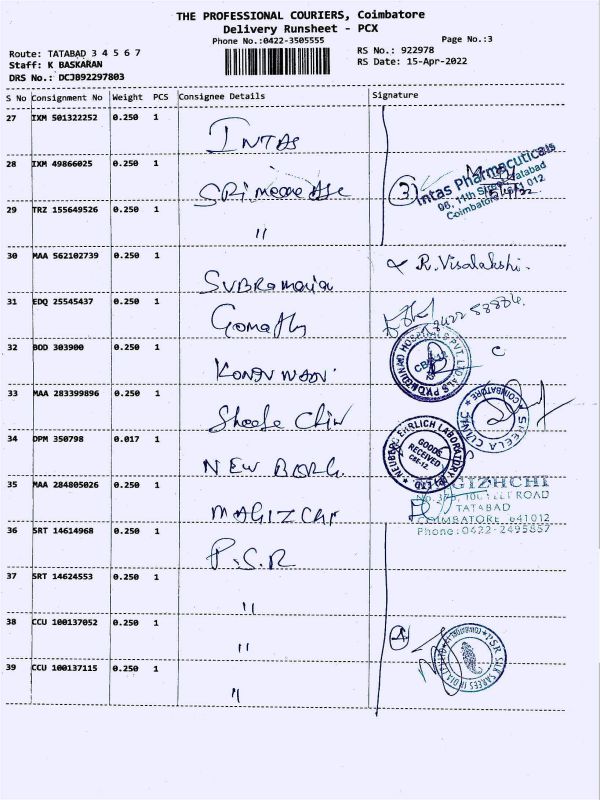 THE PROFESSIONAL COURIERS, Coimbatore
Delivery Runsheet - PCX
Phone No.:0422-3505555
Page No.:3
Route: TATABAD 3 4 5 6 7
RS No.: 922978
Staff: K BASKARAN
RS Date: 15-Apr-2022
DRS No.: DCJB92297803
S No Consignment No Weight PCS Consignee Details Signature
27 IXM 501322252 0.250 1 INTAS
28 IXM 49866025 0.250 1
3 Intas Pharmacuticals
96, 11th Street, Tatabad
Coimbatore 641 012
29 TRZ 155649526 0.250 1 "
30 MAA 562102739 0.250 1 SUBRamania R. Visalakshi.
31 EDQ 25545437 0.250 1 Gomathy
32 BOD 303900 0.250 1
33 MAA 283399896 0.250 1 Sheela Clin
SHEELA CLINIC COIMBATORE
34 DPM 350798 0.017 1 NEW BORG.
NEUBERG EHRLICH LABORATORY (P) LTD
GOODS
RECEIVED
CBE-12.
35 MAA 284805026 0.250 1 MAGIZCHI
GIZHCHI
ROAD
TATABAD
COIMBATORE 641012
Phone:0422-2495857
36 SRT 14614968 0.250 1 P.S.R
37 SRT 14624553 0.250 1 "
38 CCU 100137052 0.250 1 "
4
PSR SILK SAREES INDIA
39 CCU 100137115 0.250 1 "